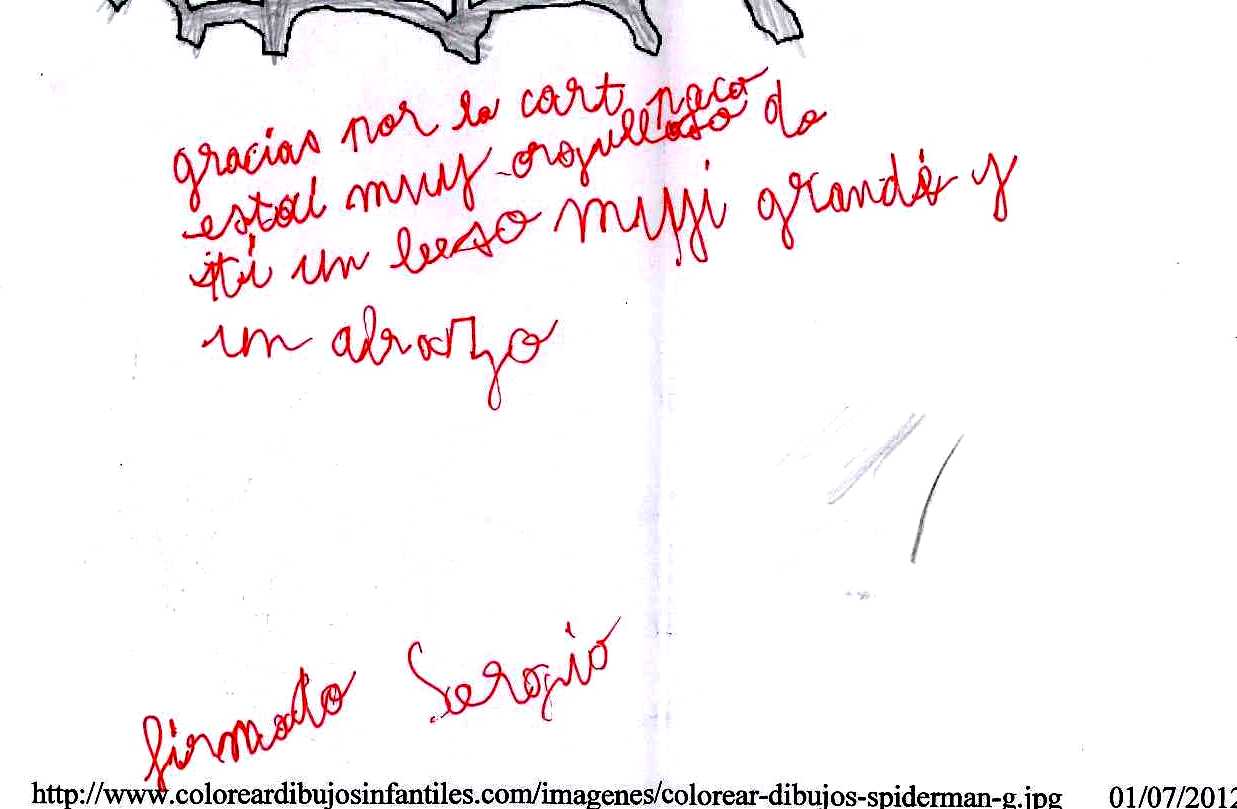 gracias por la cart paco
estal muy orgulloso de
ti un beso muyi grande y
un abrazo
firmato Sergio
http://www.coloreardibujosinfantiles.com/imagenes/colorear-dibujos-spiderman-g.jpg 01/07/2012